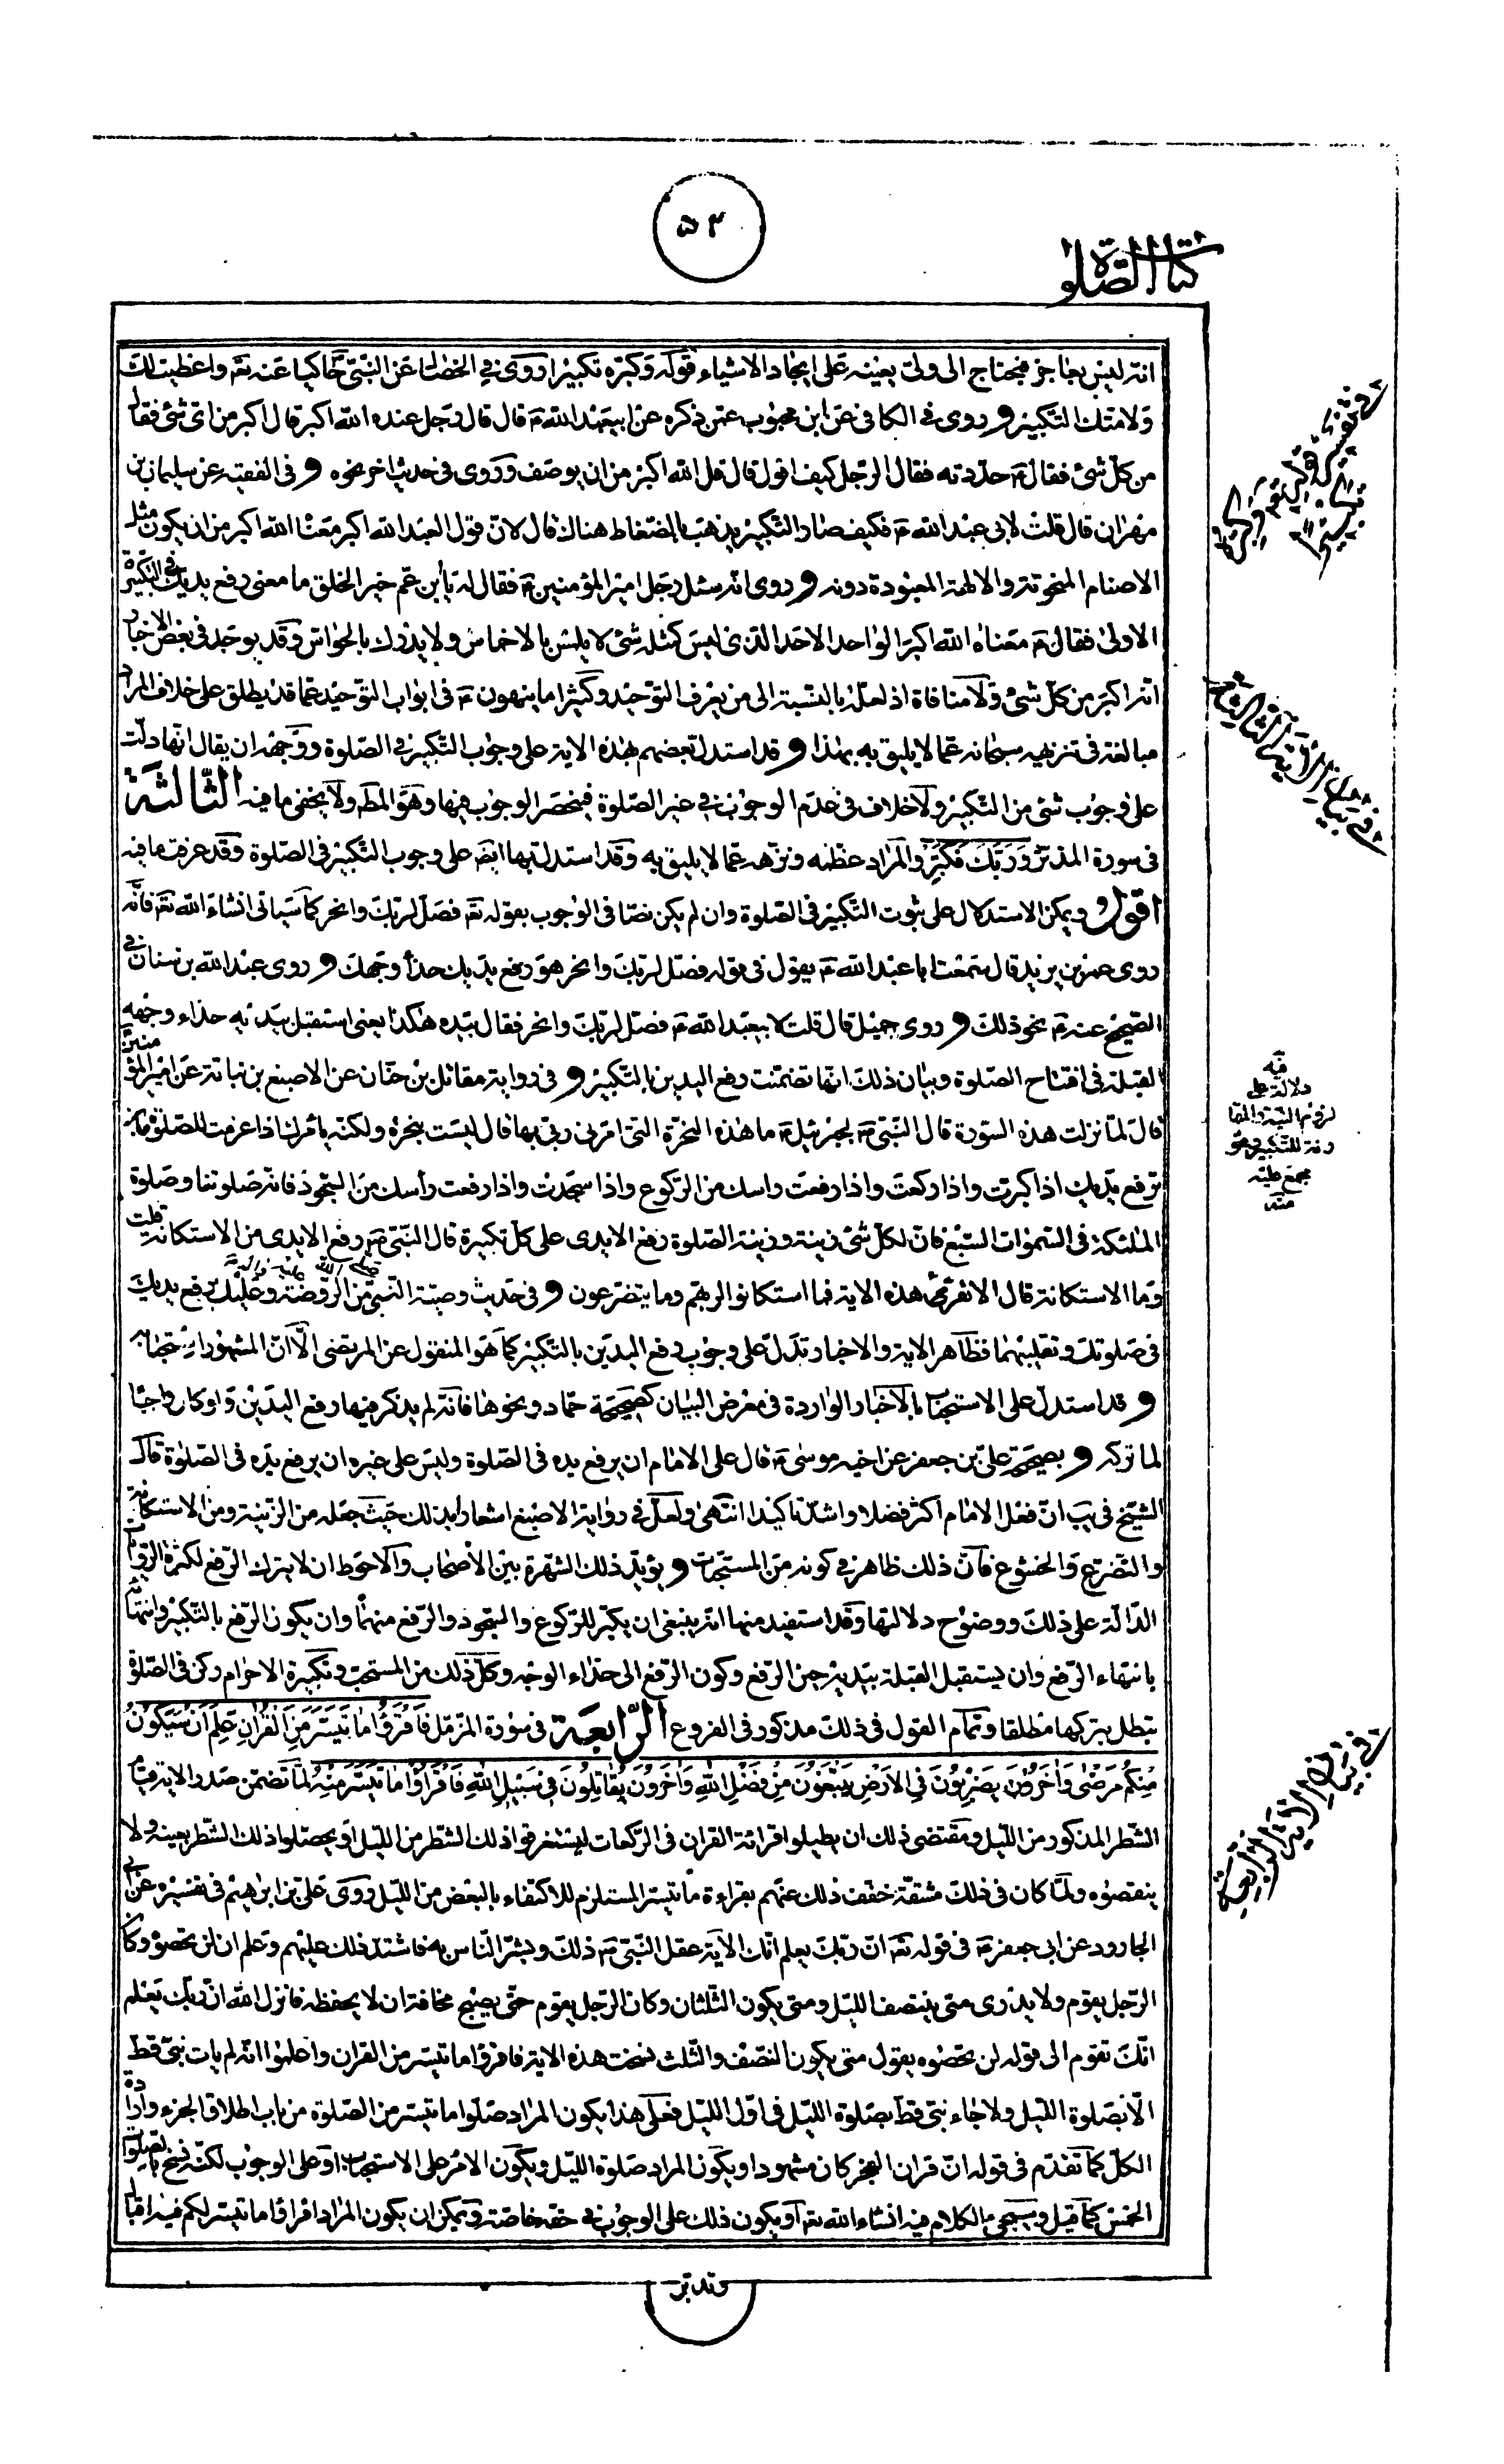 ٥٣
كتاب الصلوة
انه ليس بعاجز فيحتاج الى ولى يعينه على ايجاد الاشياء قوله وكبره تكبيرا روى فى الخصال عن النبى حاكيا عنه تع واعطيت لك
ولامتك التكبير و روى فى الكافى عن ابن محبوب عمن ذكره عن ابيعبد الله ع قال قال رجل عنده الله اكبر قال اكبر من اى شئ فقال
من كل شئ فقال ع حددته فقال الرجل كيف اقول قال قل الله اكبر من ان يوصف وروى فى حديث اخر نحوه و فى الفقيه عن سليمان بن
مهران قال قلت لابى عبد الله ع فكيف صار التكبير يذهب بالضغاط هناك قال لان قول العبد الله اكبر معناه الله اكبر من ان يكون مثل
الاصنام المنحوتة والالهة المعبودة دونه و روى انه سئل رجل امير المؤمنين ع فقال له يا بن عم خير الخلق ما معنى رفع يديك فى التكبيرة
الاولى فقال ع معناه الله اكبر الواحد الاحد الذى ليس كمثله شئ لا يلمس بالاخماس ولا يدرك بالحواس وقد يوجد فى بعض الاخبار
انه اكبر من كل شئ ولا منافاة اذ لعله بالنسبة الى من يعرف التوحيد وكثيرا ما ينهون ع فى ابواب التوحيد عما قد يطلق على خلاف المراد
مبالغة فى تنزيهه سبحانه عما لا يليق به بهذا و قد استدل بعضهم بهذه الاية على وجوب التكبير فى الصلوة ووجهه ان يقال انها دلت
على وجوب شئ من التكبير ولا خلاف فى عدم الوجوب فى غير الصلوة فينحصر الوجوب فيها وهو المط ولا يخفى ما فيه الثالثة
فى سورة المدثر وربك فكبر والمراد عظمه ونزهه عما لا يليق به وقد استدل بها ايض على وجوب التكبير فى الصلوة وقد عرفت ما فيه
اقول و يمكن الاستدلال على ثبوت التكبير فى الصلوة وان لم يكن نصا فى الوجوب بقوله تع فصل لربك وانحر كما سياتى انشاء الله تع فانه
روى عمر بن يزيد قال سمعت ابا عبد الله ع يقول فى قوله فصل لربك وانحر هو رفع يديك حذاء وجهك و روى عبد الله بن سنان فى
الصحيح عنه ع نحو ذلك و روى جميل قال قلت لابيعبد الله ع فصل لربك وانحر فقال بيده هكذا يعنى استقبل بيديه حذاء وجهه
القبلة فى افتتاح الصلوة وبيان ذلك انها تضمنت رفع اليدين بالتكبير و فى رواية مقاتل بن حنان عن الاصبغ بن نباتة عن امير المؤمنين
قال لما نزلت هذه السورة قال النبى ص لجبرئيل ع ما هذه النحرة التى امرنى ربى بها قال ليست بنحرة ولكنه يامرك اذا عزمت للصلوة ان
ترفع يديك اذا كبرت واذا ركعت واذا رفعت راسك من الركوع واذا سجدت واذا رفعت رأسك من السجود فانه صلوتنا وصلوة
الملئكة فى السموات السبع فان لكل شئ زينة وزينة الصلوة رفع الايدى على كل تكبيرة قال النبى ص رفع الايدى من الاستكانة قلت
وما الاستكانة قال الا تقرئ هذه الاية فما استكانوا لربهم وما يتضرعون و فى حديث وصية النبى صلى الله عليه واله من الروضة وعليك برفع يديك
فى صلوتك وتقليبهما فظاهر الاية والاخبار تدل على وجوب رفع اليدين بالتكبير كما هو المنقول عن المرتضى الا ان المشهور استحبابه
و قد استدل على الاستحباب بالاخبار الواردة فى معرض البيان كصحيحة حماد ونحوها فانه لم يذكر فيها رفع اليدين ولو كان واجبا
لما تركه و بصحيحة على بن جعفر عن اخيه موسى ع قال على الامام ان يرفع يده فى الصلوة وليس على غيره ان يرفع يده فى الصلوة قال
الشيخ فى يب ان فعل الامام اكثر فضلا واشد تاكيدا انتهى ولعل فى رواية الاصبغ اشعارا بذلك حيث جعله من الزينة ومن الاستكانة
والتضرع والخشوع فان ذلك ظاهر فى كونه من المستحبات و يؤيد ذلك الشهرة بين الأصحاب والاحوط ان لا يترك الرفع لكثرة الروايات
الدالة على ذلك ووضوح دلالتها وقد استفيد منها انه ينبغى ان يكبر للركوع والسجود والرفع منهما وان يكون الرفع بالتكبير وانتهائه
بانتهاء الرفع وان يستقبل القبلة بيديه حين الرفع وكون الرفع الى حذاء الوجه وكل ذلك من المستحب وتكبيرة الاحرام ركن فى الصلوة
تبطل بتركها مطلقا وتمام القول فى ذلك مذكور فى الفروع الرابعة فى سورة المزمل فَاقْرَؤُا مَا تَيَسَّرَ مِنَ الْقُرْانِ عَلِمَ اَنْ سَيَكُونُ
مِنْكُمْ مَرْضٰى وَاٰخَرُونَ يَضْرِبُونَ فِى الْاَرْضِ يَبْتَغُونَ مِنْ فَضْلِ اللهِ وَاٰخَرُونَ يُقَاتِلُونَ فِى سَبِيلِ اللهِ فَاقْرَاؤُا مَا تَيَسَّرَ مِنْهُ لما تضمن صدر الاية قيام
الشطر المذكور من الليل ومقتضى ذلك ان يطيلوا قرائة القران فى الركعات ليستغرقوا ذلك الشطر من الليل او يحصلوا ذلك الشطر بعينه ولا
ينقصوه ولما كان فى ذلك مشقة خفف ذلك عنهم بقراءة ما تيسر المستلزم للاكتفاء بالبعض من الليل وروى على بن ابرهيم فى تفسيره عن ابى
الجارود عن ابى جعفر ع فى قوله تع ان ربك يعلم انك الاية عقل النبى ص ذلك وبشر الناس به فاشتد ذلك عليهم وعلم ان لن تحصوه وكان
الرجل يقوم ولا يدرى متى ينتصف الليل ومتى يكون الثلثان وكان الرجل يقوم حتى يصبح مخافة ان لا يحفظه فانزل الله ان ربك يعلم
انك تقوم الى قوله لن تحصوه يقول متى يكون النصف والثلث نسخت هذه الاية فاقرؤا ما تيسر من القران واعلموا انه لم يات نبى قط
الا بصلوة الليل ولا جاء نبى قط بصلوة الليل فى اول الليل فعلى هذا يكون المراد صلوا ما تيسر من الصلوة من باب اطلاق الجزء وارادة
الكل كما تقدم فى قوله ان قران الفجر كان مشهودا ويكون المراد صلوة الليل ويكون الامر على الاستحباب او على الوجوب لكنه نسخ بالصلوات
الخمس كما قيل وسيجئ الكلام فيه انشاء الله تع او يكون ذلك على الوجوب فى حقه خاصة ويمكن ان يكون المراد اقرؤا ما تيسر لكم فيه اقبال
وتدبر
فى تفسير قوله تع وكبره
تكبيرا
فى بيان الاية الثالثة
فيه
دلالة على
لزوم النية المقا
رنة للتكبير وهو
مجمع عليه
منه
فى بيان الاية الرابعة